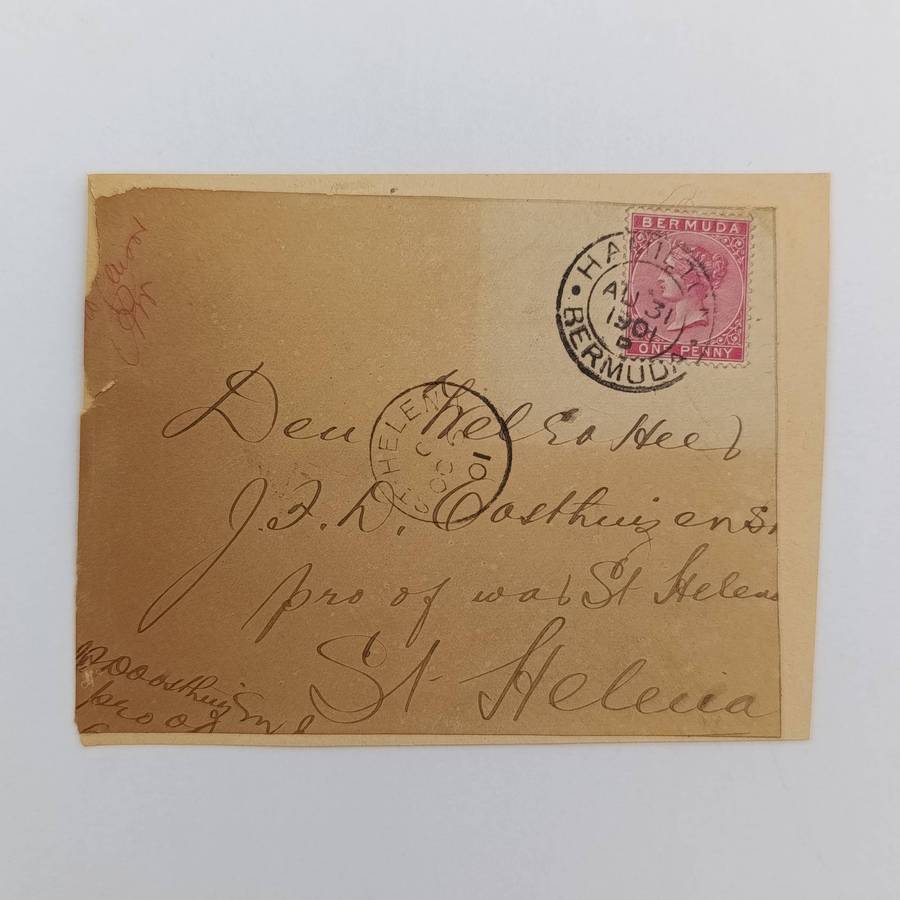 BERMUDA
ONE PENNY
HAMILTON
AU 31
1901
BERMUDA
HELENA
Den
J. F. D. Oosthuizen
pro of war St Helena
St Helena
Oosthuizen
pro of